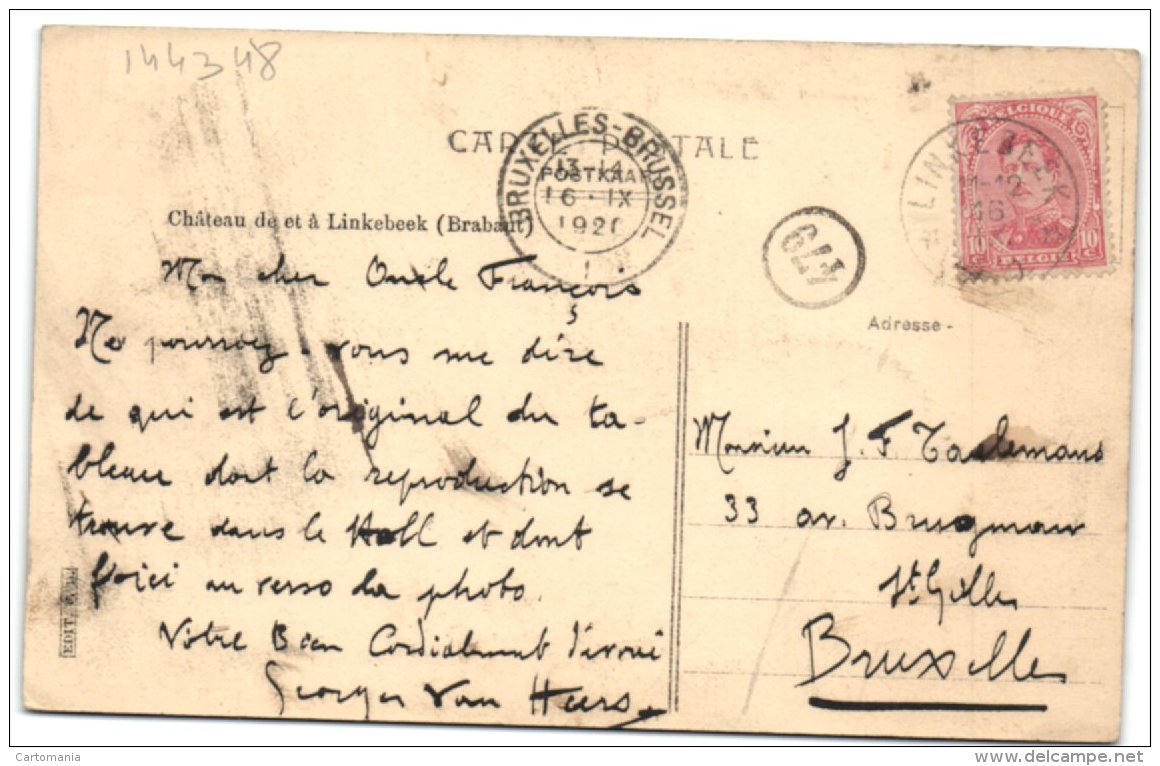 144348
CARTE POSTALE
POSTKAART
BRUXELLES-BRUSSEL
13-14
16·IX
1920
LINKEBEEK
11-12
16
BELGIQUE
10 c. 10 c.
BELGIË
479
Château de et à Linkebeek (Brabant)
Mon cher Oncle François
Ne pourriez-vous me dire
de qui est l'original du ta-
bleau dont la reproduction se
trouve dans le Hall et dont
Voici au verso la photo.
Votre Bien Cordialement Dévoué
Georges Van Heers
Adresse -
Monsieur J. F. Taelemans
33 av. Brugmann
St Gilles
Bruxelles
EDIT.
Cartomania
delcampe.net